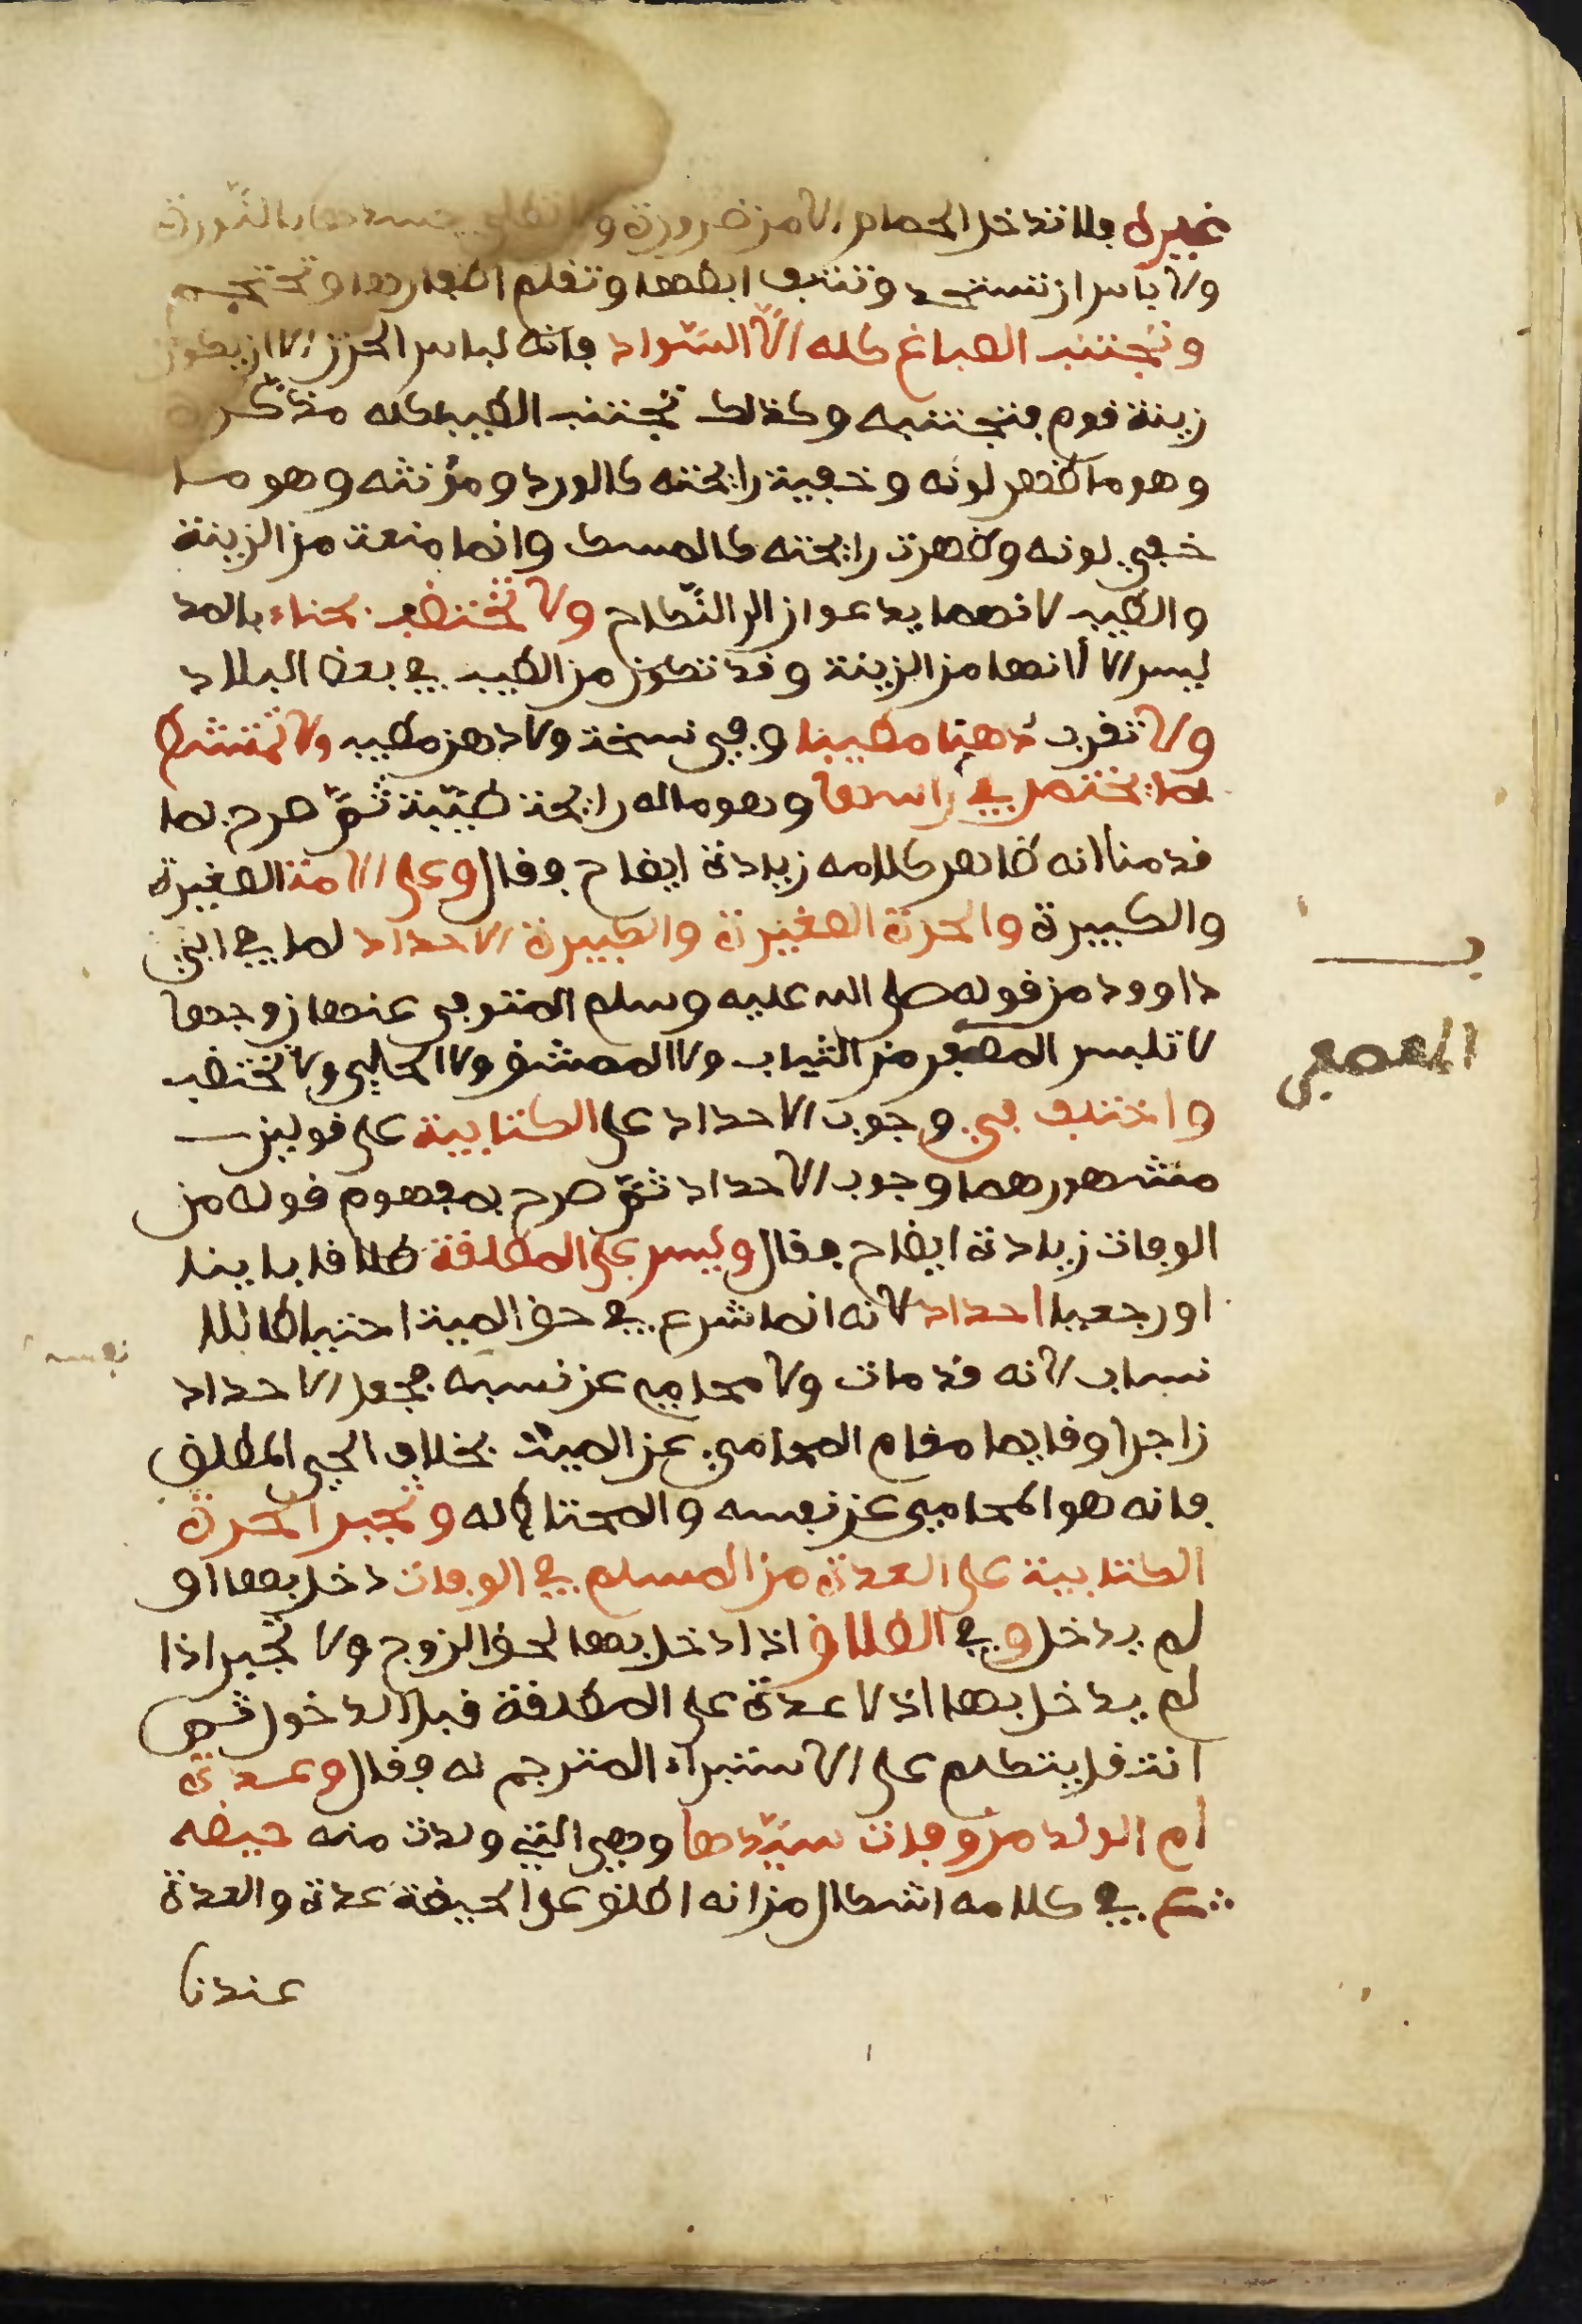 غيره فلا تدخل الحمام الا من ضرورة ولا تطلي جسدها بالنورة
ولا باس ان تستحد وتنتف ابطها وتقلم اظفارها وتحتجم
وتجتنب الصباغ كله الا السواد فانه لباس الحزن الا ان يكون
زينة قوم فتجتنبه وكذلك تجتنب الطيب كله مذكره
وهو ما ظهر لونه وخفية رايحته كالورد ومؤنثه وهو ما
خفي لونه وظهرت رايحته كالمسك وانما منعت من الزينة
والطيب لانهما يدعوان الى النكاح ولا تختضب بحناء بالمد
ليس الا لانها من الزينة وقد تكون من الطيب في بعض البلاد
ولا تقرب دهنا مطيبا وفي نسخة ولا دهن مطيب ولا تمتشط
بما يختمر في راسها وهو ما له رايحة طيبة ثم صرح بما
قدمنا انه ظاهر كلامه زيادة ايضاح فقال وعلى الامة الصغيرة
والكبيرة والحرة الصغيرة والكبيرة الاحداد لما في ابي
داوود من قوله صلى الله عليه وسلم المتوفى عنها زوجها
لا تلبس المعصفر من الثياب ولا الممشق ولا الحلي ولا تختضب
واختلف في وجوب الاحداد على الكتابية على قولين
مشهورهما وجوب الاحداد ثم صرح بمفهوم قوله من
الوفات زيادة ايضاح فقال وليس على المطلقة طلاقا باينا
او رجعيا احداد لانه انما شرع في حق الميت احتياطا للا
نساب لانه قد مات ولا محامي عن نسبه فجعل الاحداد
زاجرا وقايما مقام المحامي عن الميت بخلاف الحي المطلق
فانه هو المحامي عن نفسه والمحتاط له وتجبر الحرة
الكتابية على العدة من المسلم في الوفات دخل بها او
لم يدخل وفي الطلاق اذا دخل بها لحق الزوج ولا تجبر اذا
لم يدخل بها اذ لا عدة على المطلقة قبل الدخول ثم
انتقل يتكلم على الاستبراء المترجم له فقال وعدة
ام الولد من وفات سيدها وهي التي ولدت منه حيضه
ع في كلامه اشكال من انه اطلق على الحيضة عدة والعدة
عندنا
نفسه